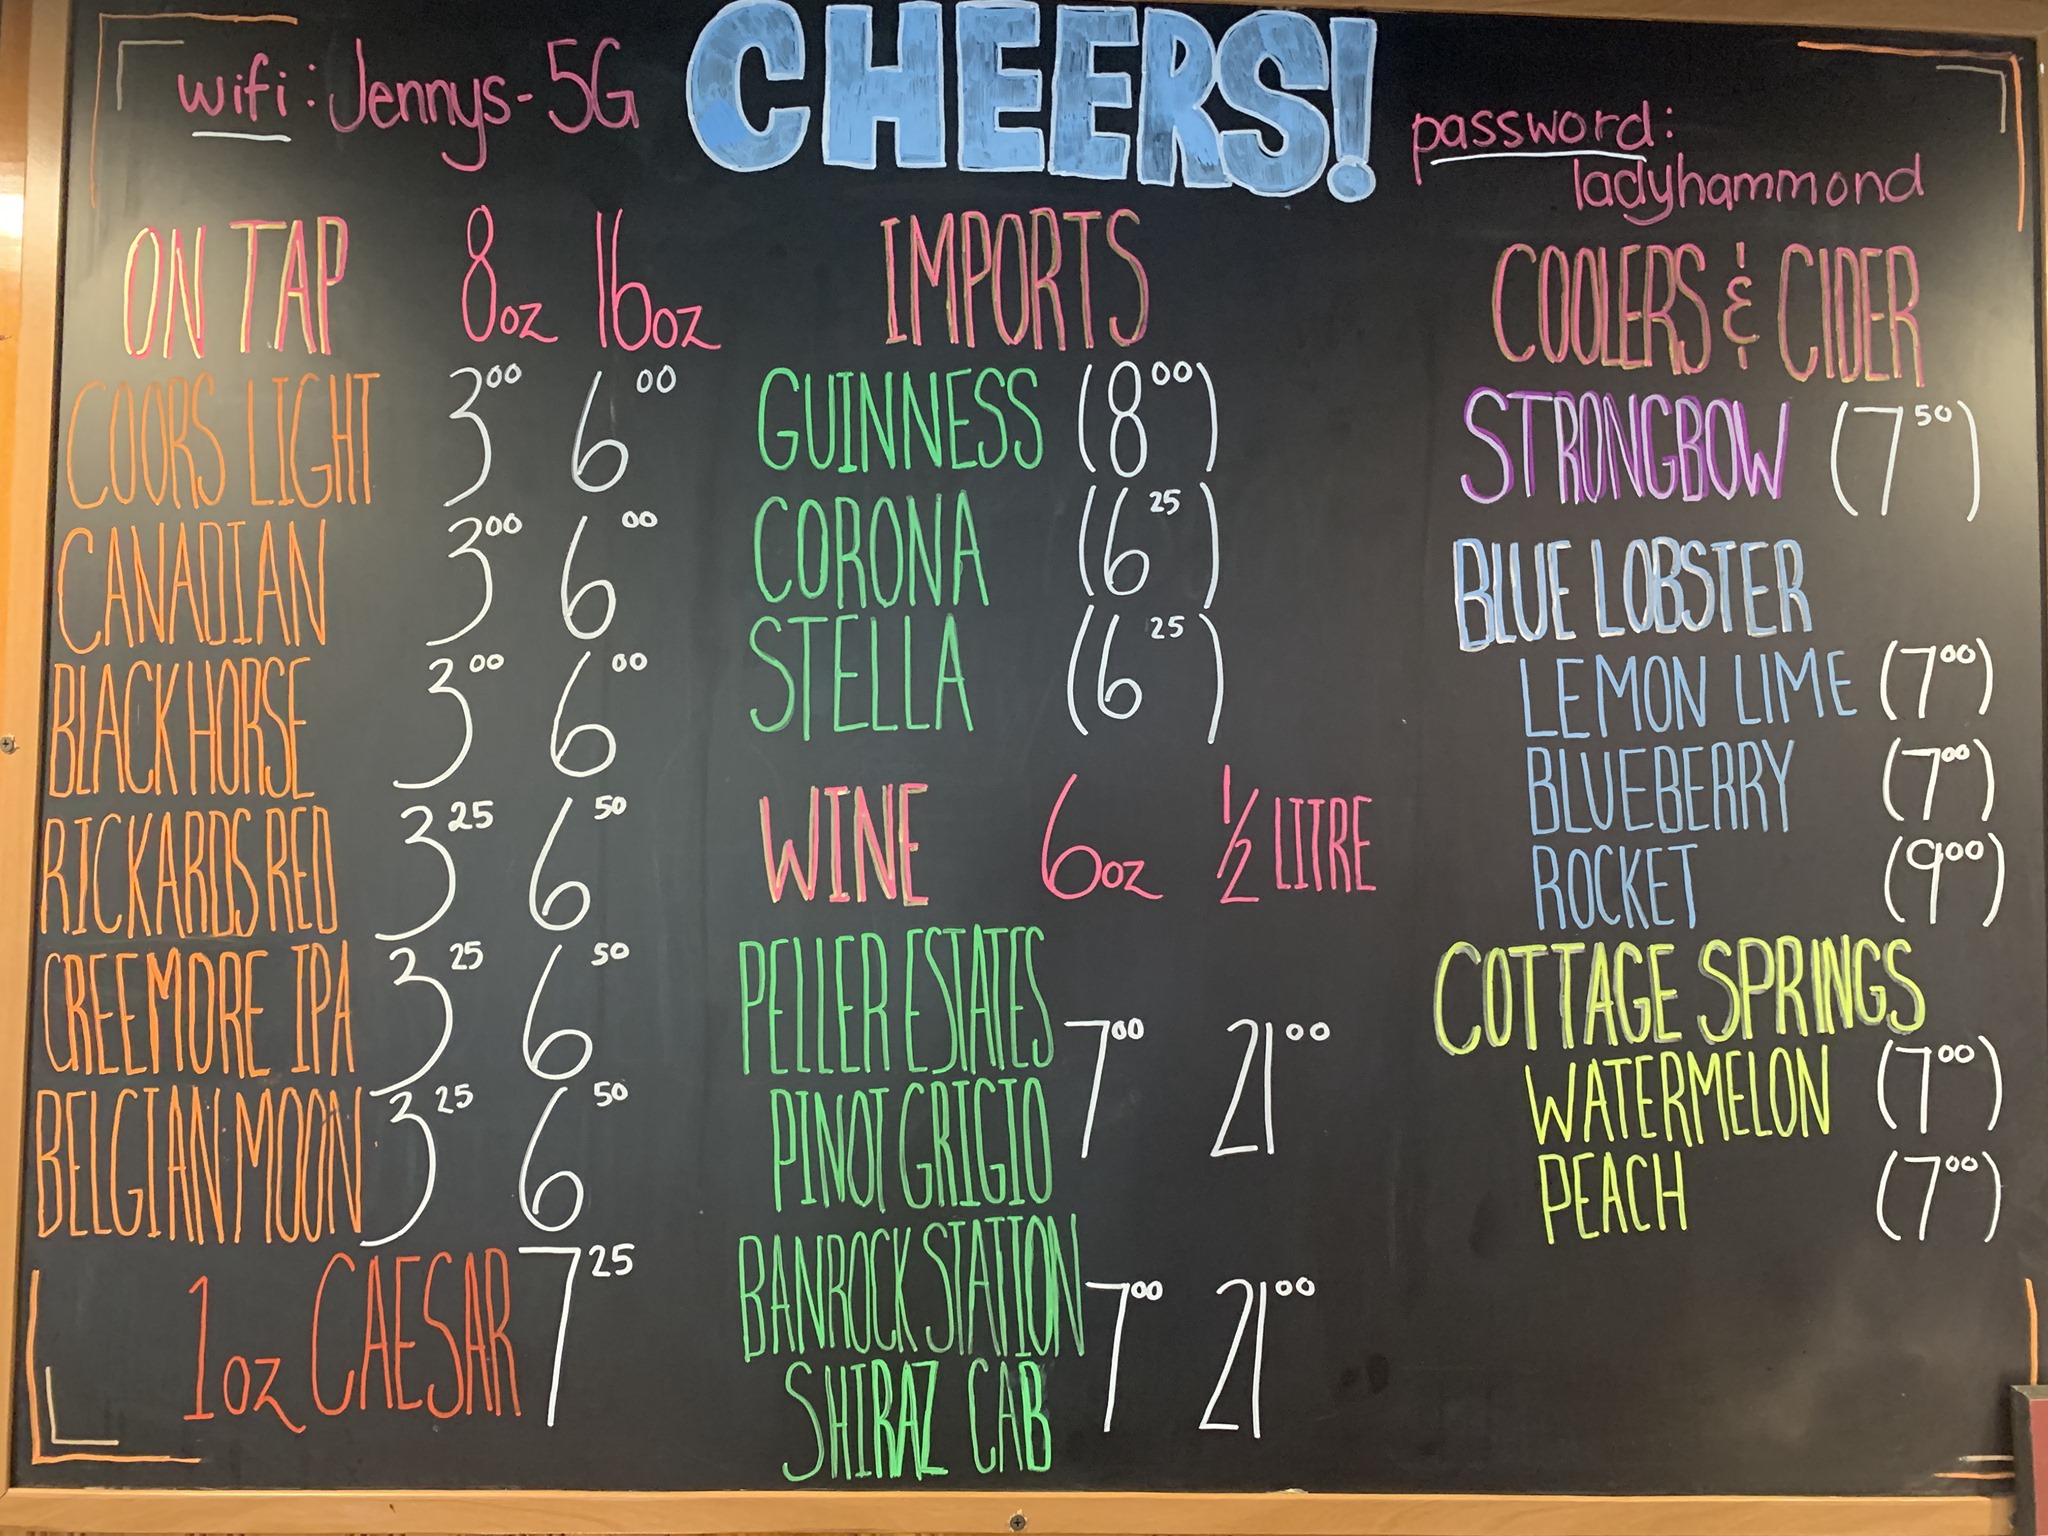 CHEERS!
wifi: Jennys-5G
password:
ladyhammond
ON TAP 8oz 16oz
COORS LIGHT 3.00 6.00
CANADIAN 3.00 6.00
BLACK HORSE 3.00 6.00
RICKARDS RED 3.25 6.50
CREEMORE IPA 3.25 6.50
BELGIAN MOON 3.25 6.50
1oz CAESAR 7.25
IMPORTS
GUINNESS (8.00)
CORONA (6.25)
STELLA (6.25)
WINE 6oz 1/2 LITRE
PELLER ESTATES
PINOT GRIGIO 7.00 21.00
BANROCK STATION
SHIRAZ CAB 7.00 21.00
COOLERS & CIDER
STRONGBOW (7.50)
BLUE LOBSTER
LEMON LIME (7.00)
BLUEBERRY (7.00)
ROCKET (9.00)
COTTAGE SPRINGS
WATERMELON (7.00)
PEACH (7.00)